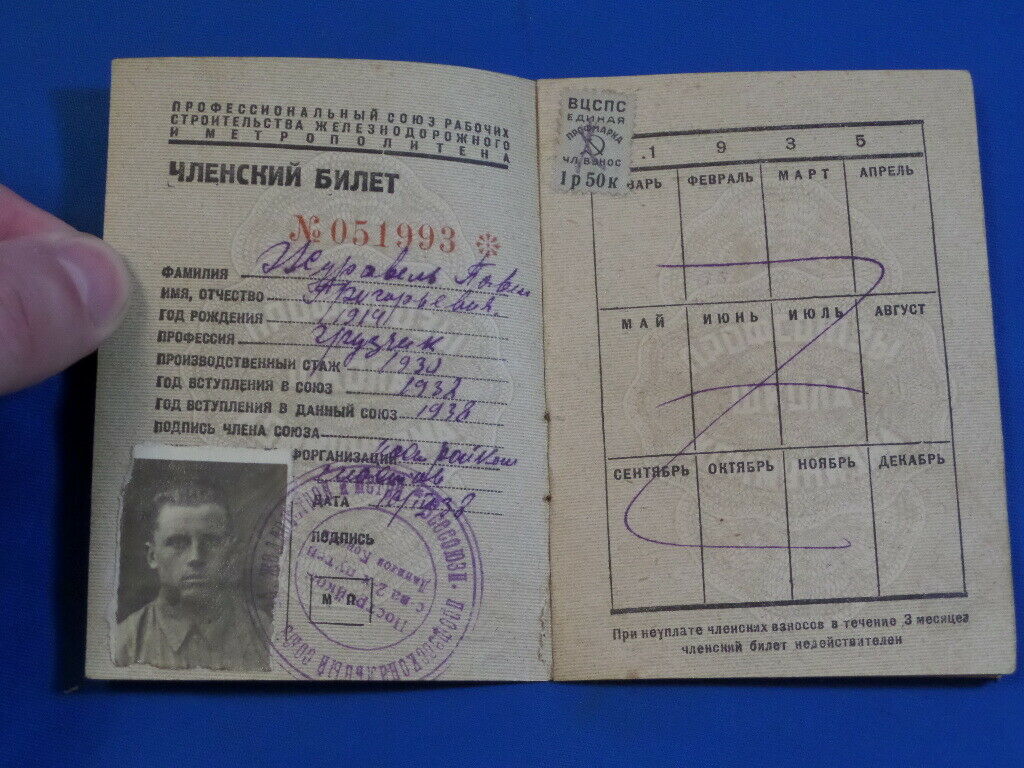 ПРОФЕССИОНАЛЬНЫЙ СОЮЗ РАБОЧИХ
СТРОИТЕЛЬСТВА ЖЕЛЕЗНОДОРОЖНОГО
И МЕТРОПОЛИТЕНА
ЧЛЕНСКИЙ БИЛЕТ
№ 051993
ФАМИЛИЯ Журавель Павел
ИМЯ, ОТЧЕСТВО Григорьевич
ГОД РОЖДЕНИЯ 1914
ПРОФЕССИЯ грузчик
ПРОИЗВОДСТВЕННЫЙ СТАЖ 1930
ГОД ВСТУПЛЕНИЯ В СОЮЗ 1932
ГОД ВСТУПЛЕНИЯ В ДАННЫЙ СОЮЗ 1938
ПОДПИСЬ ЧЛЕНА СОЮЗА
ФОРГАНИЗАЦИИ
ДАТА 1938
ПОДПИСЬ
М П
Постройком
с-ва 2-х путей
ВЦСПС
ЕДИНАЯ
ПРОФМАРКА
ЧЛ. ВЗНОС
1 р 50 к
.1 9 3 5
ВАРЬ ФЕВРАЛЬ МАРТ АПРЕЛЬ
МАЙ ИЮНЬ ИЮЛЬ АВГУСТ
СЕНТЯБРЬ ОКТЯБРЬ НОЯБРЬ ДЕКАБРЬ
При неуплате членских взносов в течение 3 месяцев
членский билет недействителен